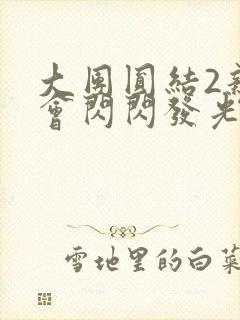 大團圓結2
會閃閃發光
雪地里的白菜